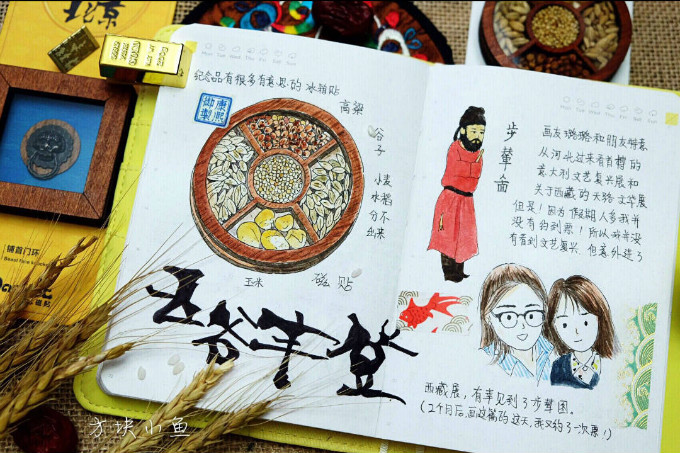 纪念品有很多有意思的冰箱贴
康熙
御制
高粱
谷子
小麦
水稻
分不
出来
玉米
磁贴
五谷丰登
步辇图
画友璐璐和朋友特意
从河北过来看首博的
意大利文艺复兴展和
关于西藏的天路文华展
但是!因为假期人多我并
没有约到票!所以
有看到文艺复兴.但意外进了
西藏展,有幸见到了步辇图。
(2个月后,画这篇的这天,我又约了一次票!)
铺首门环
方块小鱼